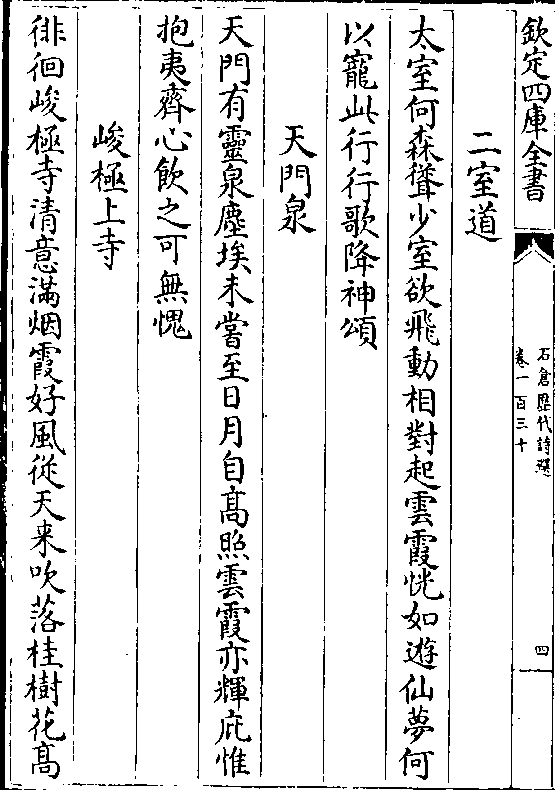 欽定四庫全書
石倉歴代詩選
卷一百三十
四
二室道
太室何森聳少室欲飛動相對起雲霞恍如遊仙夢何
以寵此行行歌降神頌
天門泉
天門有靈泉塵埃未嘗至日月自髙照雲霞亦輝庇惟
抱夷齊心飲之可無愧
峻極上寺
徘徊峻極寺清意滿烟霞好風從天来吹落桂樹花髙